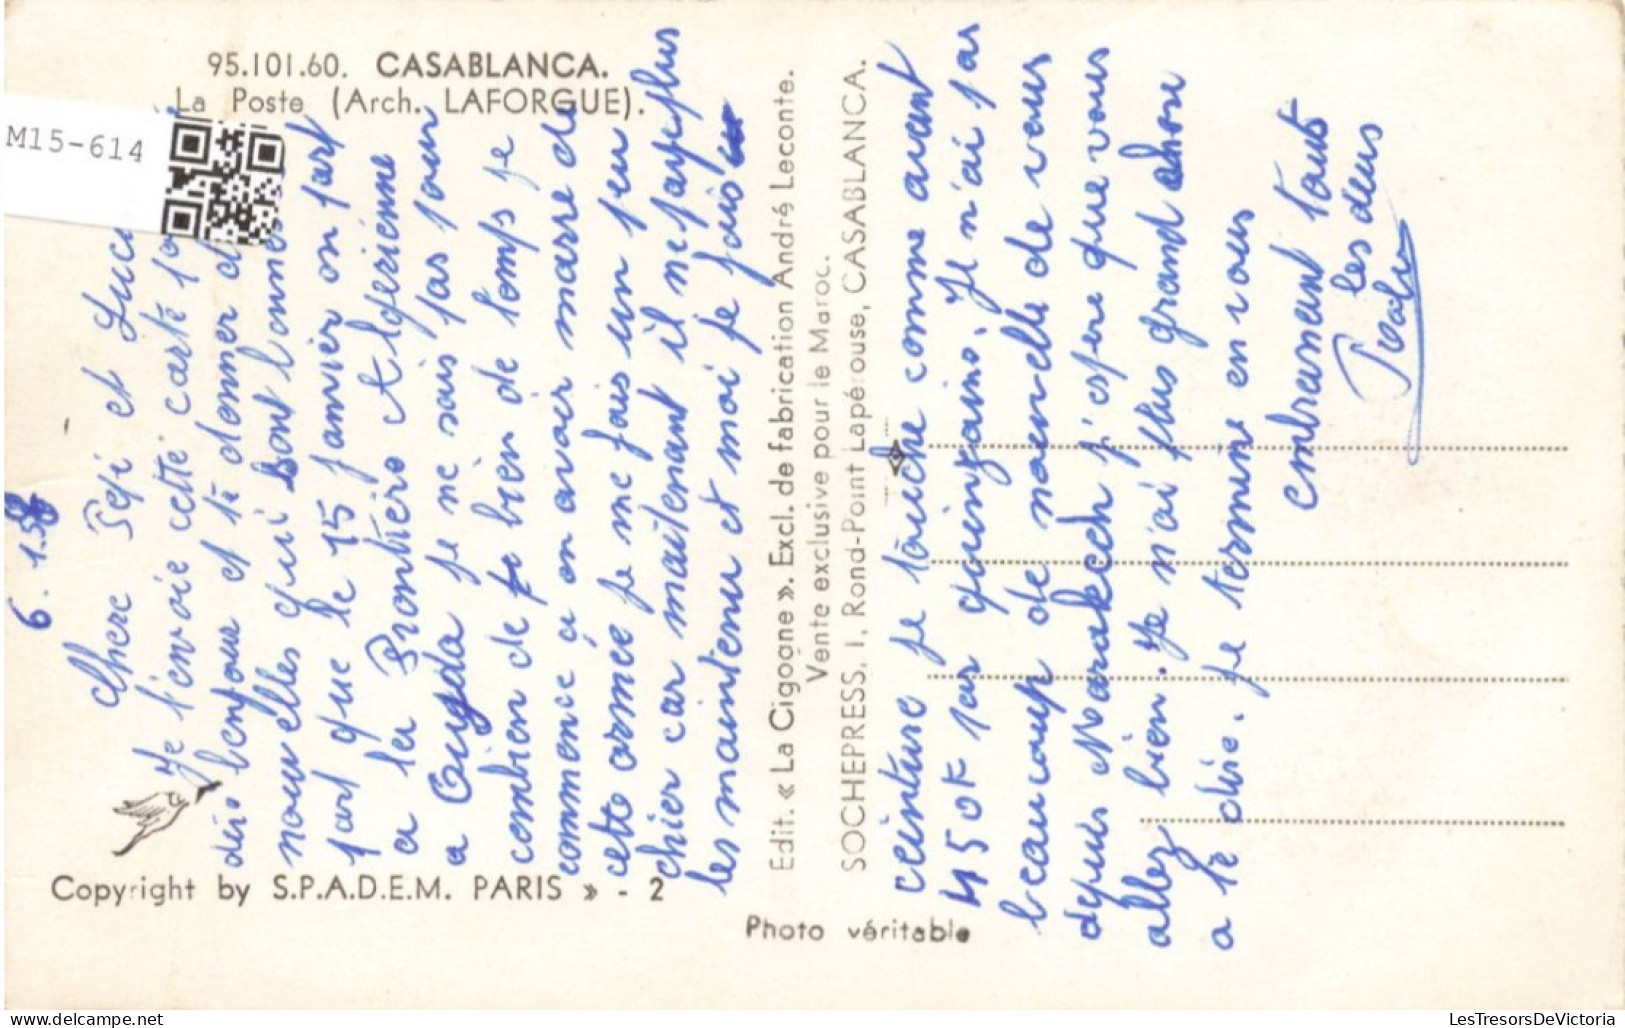 95.101.60. CASABLANCA.
La Poste (Arch. LAFORGUE).
M15-614
6.1.58
Chere Pepi et Luc
Je t'envoie cette carte
dès bonjour et te donner d
nouvelles qui sont bonnes
part que le 15 janvier on part
a la Frontière Algerienne
a Oujda je ne sais pas pour
combien de bien de temps je
commence a en avoir marre de
cette armée je me fais un peu
chier car maitenant il ne paye plus
les maintenu et moi je suis
ceinture je touche comme avant
450F par quinzaine. Je n'ai pas
beaucoup de nouvelle de vous
depuis Marakech j'espere que vous
allez bien. Je n'ai plus grand chose
a te dire. Je termine en vous
embrassant touts
les deux
Edit. « La Cigogne ». Excl. de fabrication André Leconte.
Vente exclusive pour le Maroc.
SOCHEPRESS, 1, Rond-Point Lapérouse, CASABLANCA.
Copyright by S.P.A.D.E.M. PARIS » - 2
Photo véritable
LesTresorsDeVictoria